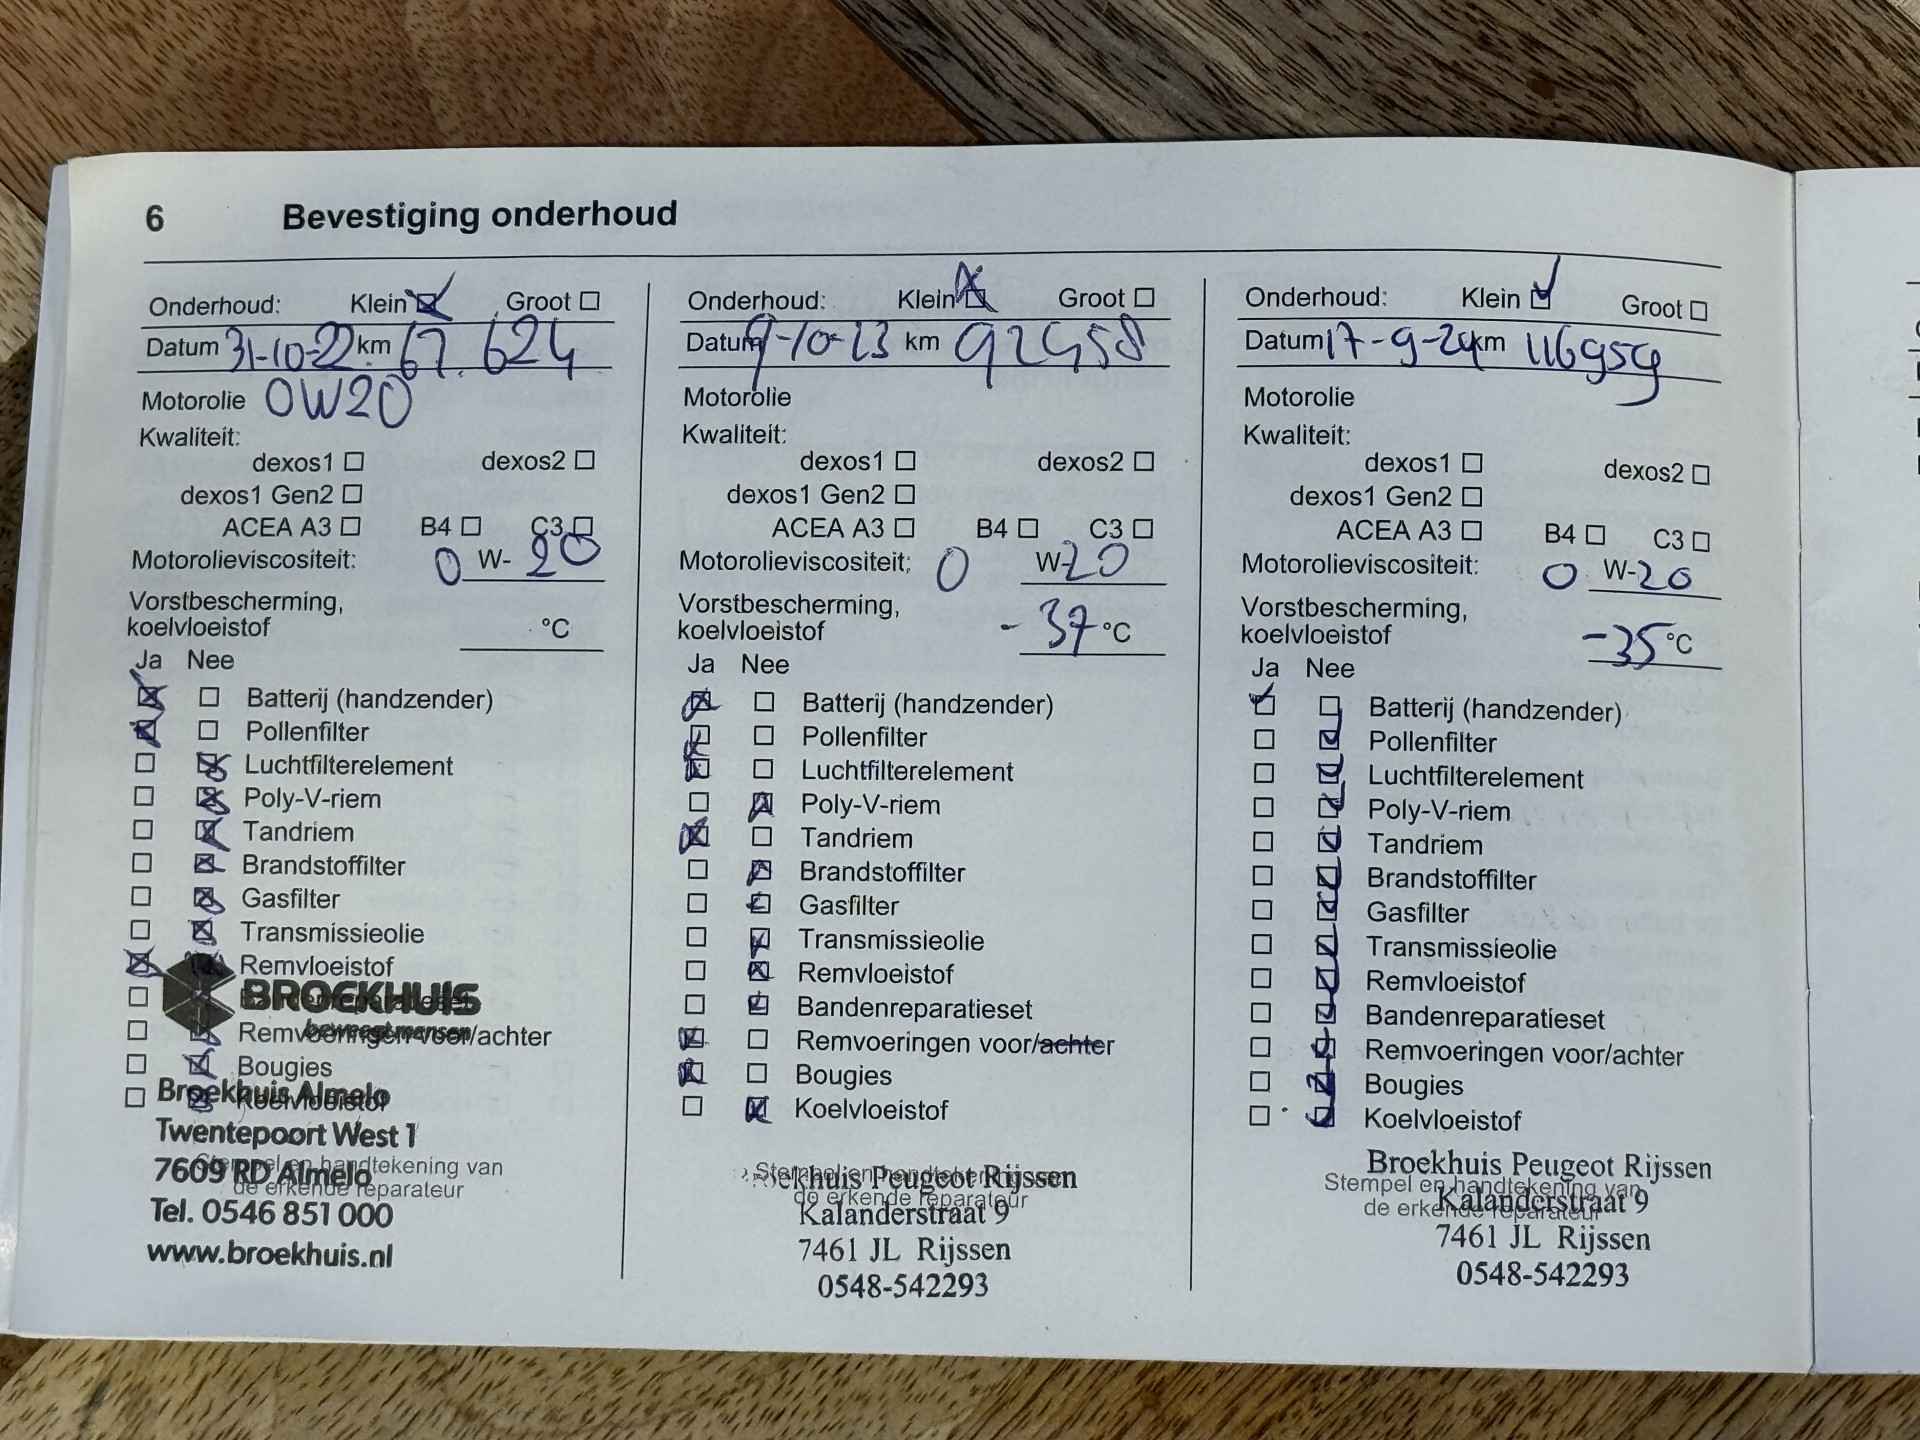 6 Bevestiging onderhoud
Onderhoud: Klein Groot
Datum 31-10-22 km 67.624
Motorolie 0W20
Kwaliteit:
dexos1 dexos2
dexos1 Gen2
ACEA A3 B4 C3
Motorolieviscositeit: 0 W-20
Vorstbescherming,
koelvloeistof °C
Ja Nee
Batterij (handzender)
Pollenfilter
Luchtfilterelement
Poly-V-riem
Tandriem
Brandstoffilter
Gasfilter
Transmissieolie
Remvloeistof
BROEKHUIS
Bandenreparatieset
beweegt mensen
Remvoeringen voor/achter
Bougies
Broekhuis Almelo
Koelvloeistof
Twentepoort West 1
Stempel en handtekening van
7609 RD Almelo
de erkende reparateur
Tel. 0546 851 000
www.broekhuis.nl
Onderhoud: Klein Groot
Datum 9-10-23 km 92458
Motorolie
Kwaliteit:
dexos1 dexos2
dexos1 Gen2
ACEA A3 B4 C3
Motorolieviscositeit: 0 W-20
Vorstbescherming,
koelvloeistof -37 °C
Ja Nee
Batterij (handzender)
Pollenfilter
Luchtfilterelement
Poly-V-riem
Tandriem
Brandstoffilter
Gasfilter
Transmissieolie
Remvloeistof
Bandenreparatieset
Remvoeringen voor/achter
Bougies
Koelvloeistof
Stempel en handtekening van
Broekhuis Peugeot Rijssen
de erkende reparateur
Kalanderstraat 9
7461 JL Rijssen
0548-542293
Onderhoud: Klein Groot
Datum 17-9-24 km 116959
Motorolie
Kwaliteit:
dexos1 dexos2
dexos1 Gen2
ACEA A3 B4 C3
Motorolieviscositeit: 0 W-20
Vorstbescherming,
koelvloeistof -35 °C
Ja Nee
Batterij (handzender)
Pollenfilter
Luchtfilterelement
Poly-V-riem
Tandriem
Brandstoffilter
Gasfilter
Transmissieolie
Remvloeistof
Bandenreparatieset
Remvoeringen voor/achter
Bougies
Koelvloeistof
Broekhuis Peugeot Rijssen
Stempel en handtekening van
Kalanderstraat 9
de erkende reparateur
7461 JL Rijssen
0548-542293